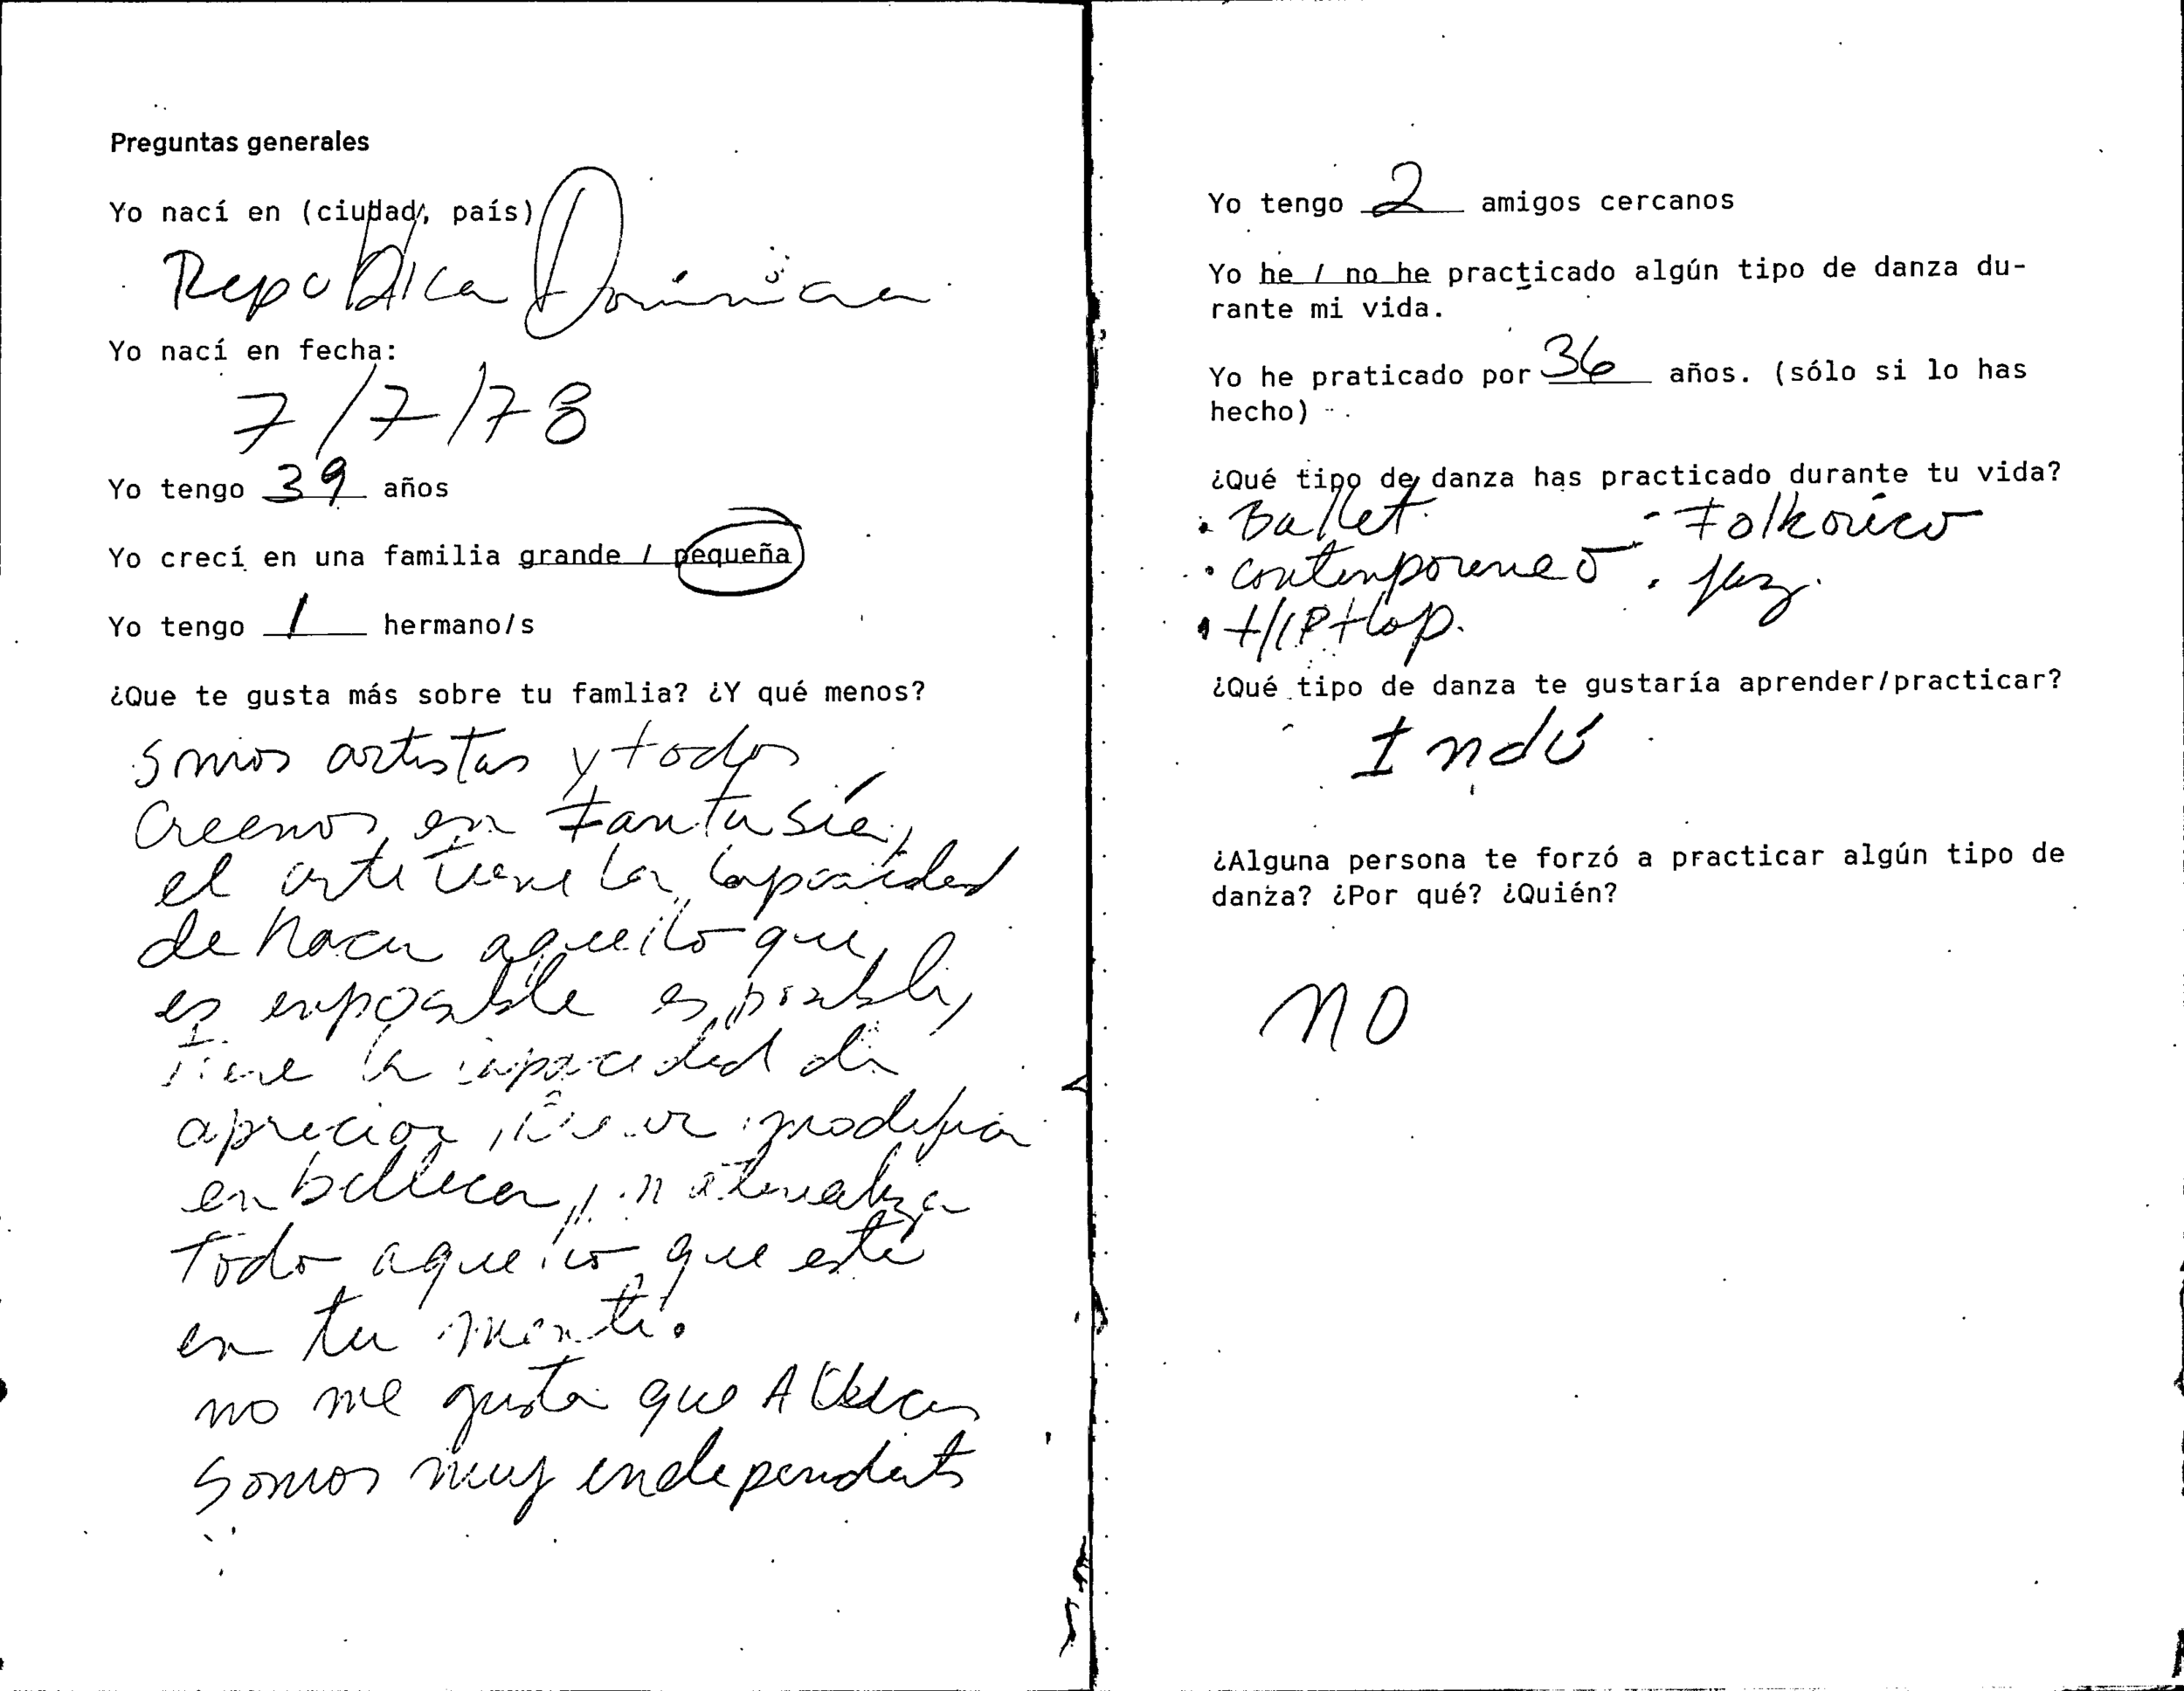 Preguntas generales
Yo nací en (ciudad, país)
Republica Dominicana
Yo nací en fecha:
7/7/78
Yo tengo 39 años
Yo crecí en una familia grande / pequeña
Yo tengo 1 hermano/s
¿Que te gusta más sobre tu famlia? ¿Y qué menos?
somos artistas y todos
Creemos en Fantasía,
el arte tiene la capacidad
de hacer aquello que
es imposible es posible,
Tiene la capacidad de
apreciar, modificar
en belleza, materializa
Todo aquello que está
en tu mente.
no me gusta que A
somos muy independents
Yo tengo 2 amigos cercanos
Yo he / no he practicado algún tipo de danza du-
rante mi vida.
Yo he praticado por 36 años. (sólo si lo has
hecho)
¿Qué tipo de danza has practicado durante tu vida?
• Ballet. - Folkorico
• contemporaneo • jaz.
• HIPHop.
¿Qué tipo de danza te gustaría aprender/practicar?
Indú
¿Alguna persona te forzó a practicar algún tipo de
danza? ¿Por qué? ¿Quién?
NO